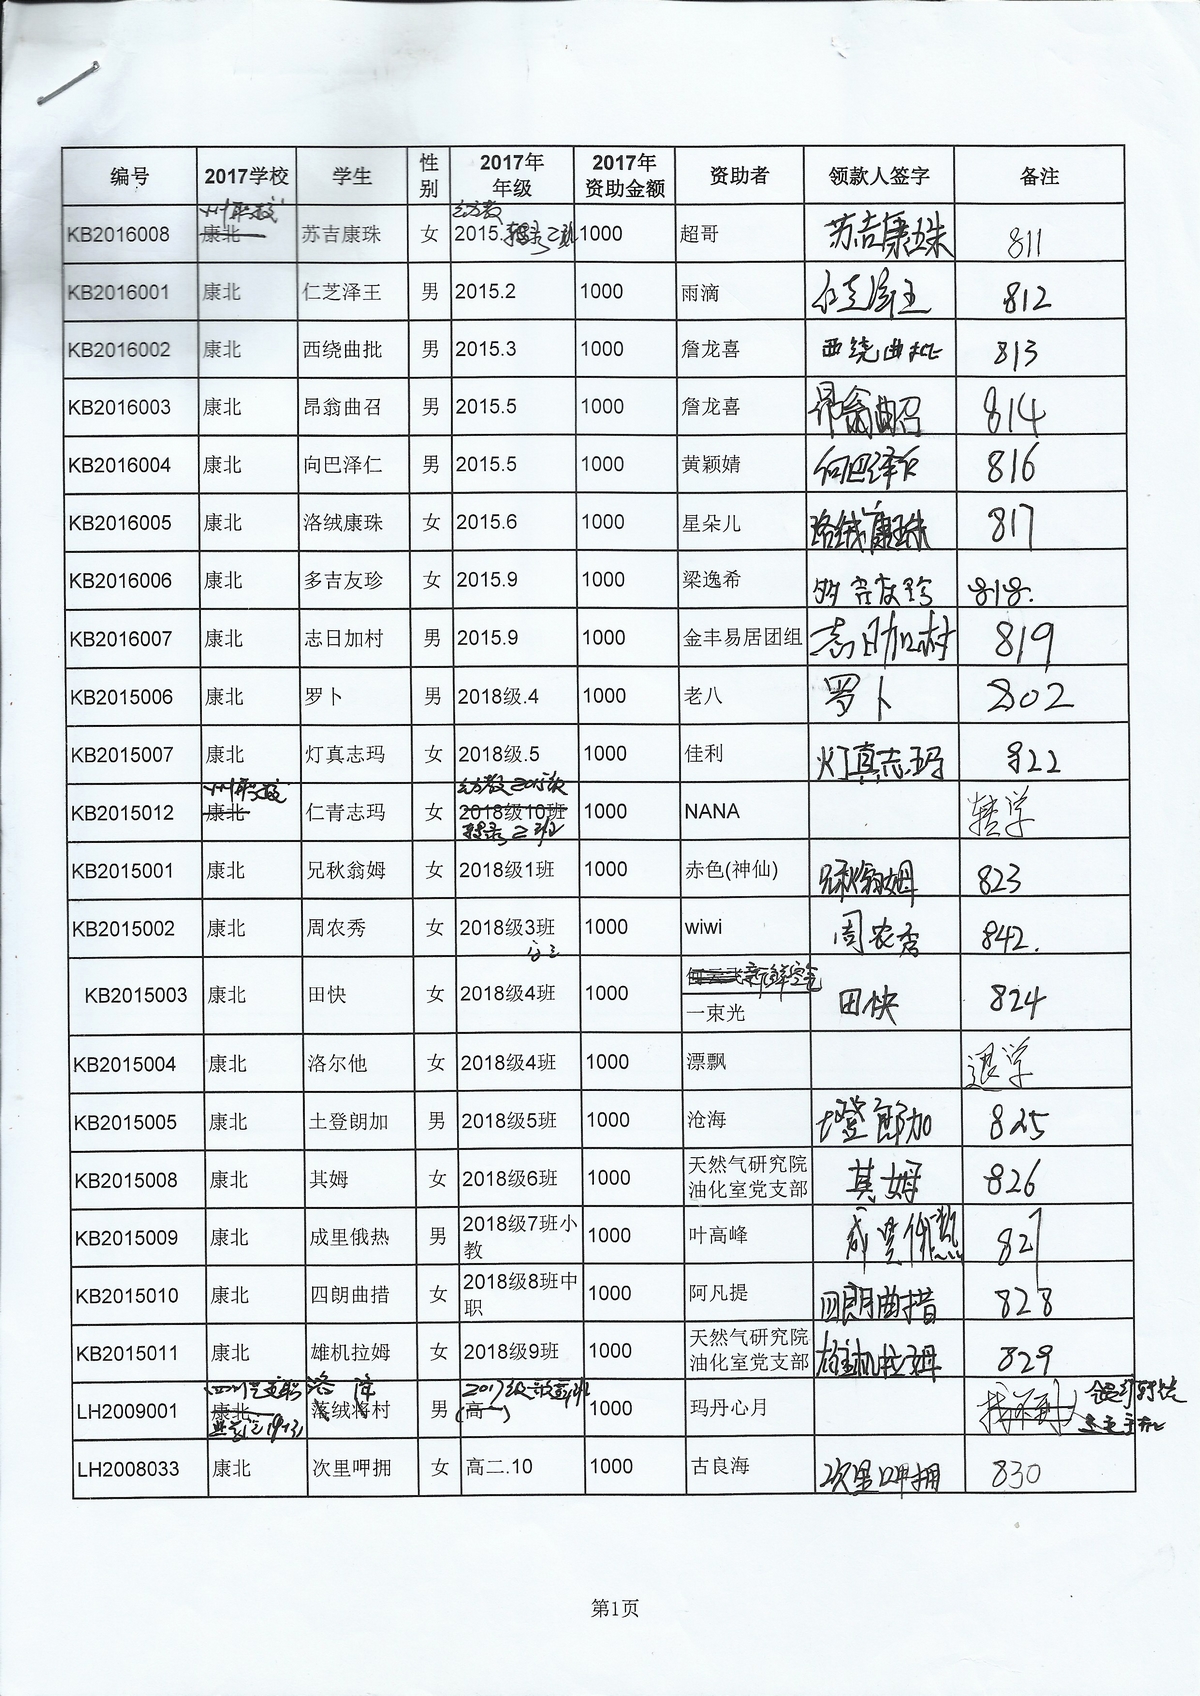 编号 2017学校 学生 性别 2017年年级 2017年资助金额 资助者 领款人签字 备注
KB2016008 康北 苏吉康珠 女 2015. 1000 超哥 苏吉康珠 811
KB2016001 康北 仁芝泽王 男 2015.2 1000 雨滴 仁芝泽王 812
KB2016002 康北 西绕曲批 男 2015.3 1000 詹龙喜 西绕曲批 813
KB2016003 康北 昂翁曲召 男 2015.5 1000 詹龙喜 昂翁曲召 814
KB2016004 康北 向巴泽仁 男 2015.5 1000 黄颖婧 向巴泽仁 816
KB2016005 康北 洛绒康珠 女 2015.6 1000 星朵儿 洛绒康珠 817
KB2016006 康北 多吉友珍 女 2015.9 1000 梁逸希 多吉友珍 818.
KB2016007 康北 志日加村 男 2015.9 1000 金丰易居团组 志日加村 819
KB2015006 康北 罗卜 男 2018级.4 1000 老八 罗卜 802
KB2015007 康北 灯真志玛 女 2018级.5 1000 佳利 灯真志玛 822
KB2015012 康北 仁青志玛 女 2018级10班 1000 NANA 转学
KB2015001 康北 兄秋翁姆 女 2018级1班 1000 赤色(神仙) 兄秋翁姆 823
KB2015002 康北 周农秀 女 2018级3班 1000 wiwi 周农秀 842.
KB2015003 康北 田快 女 2018级4班 1000 一束光 田快 824
KB2015004 康北 洛尔他 女 2018级4班 1000 漂飘 退学
KB2015005 康北 土登朗加 男 2018级5班 1000 沧海 土登郎加 825
KB2015008 康北 其姆 女 2018级6班 1000 天然气研究院油化室党支部 其姆 826
KB2015009 康北 成里俄热 男 2018级7班小教 1000 叶高峰 成里俄热 827
KB2015010 康北 四朗曲措 女 2018级8班中职 1000 阿凡提 四朗曲措 828
KB2015011 康北 雄机拉姆 女 2018级9班 1000 天然气研究院油化室党支部 雄机拉姆 829
LH2009001 康北 落绒将村 男 高一 1000 玛丹心月
LH2008033 康北 次里呷拥 女 高二.10 1000 古良海 次里呷拥 830
第1页